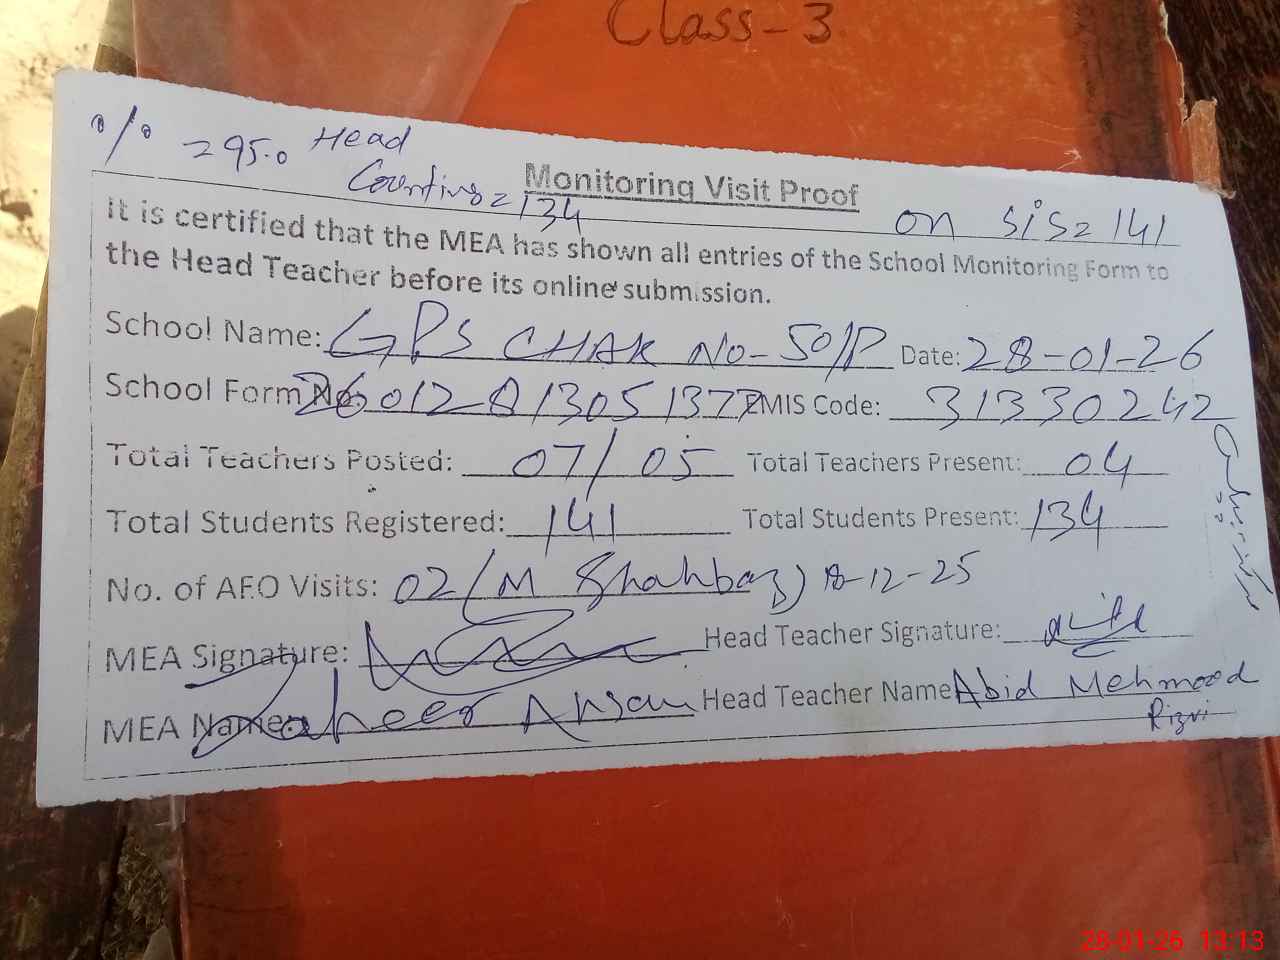 Class-3
% = 95.0 Head
Counting = 134
Monitoring Visit Proof
on SiS = 141
It is certified that the MEA has shown all entries of the School Monitoring Form to
the Head Teacher before its online submission.
School Name: GPS CHAK No-50/P Date: 28-01-26
School Form No. EMIS Code: 31330242
Total Teachers Posted: 07/05 Total Teachers Present: 04
Total Students Registered: 141 Total Students Present: 134
No. of AEO Visits: 02 (M Shahbaz) 18-12-25
MEA Signature: Head Teacher Signature:
MEA Name: Zaheer Ahsan Head Teacher Name Abid Mehmood
Rizvi
28-01-26 13:13